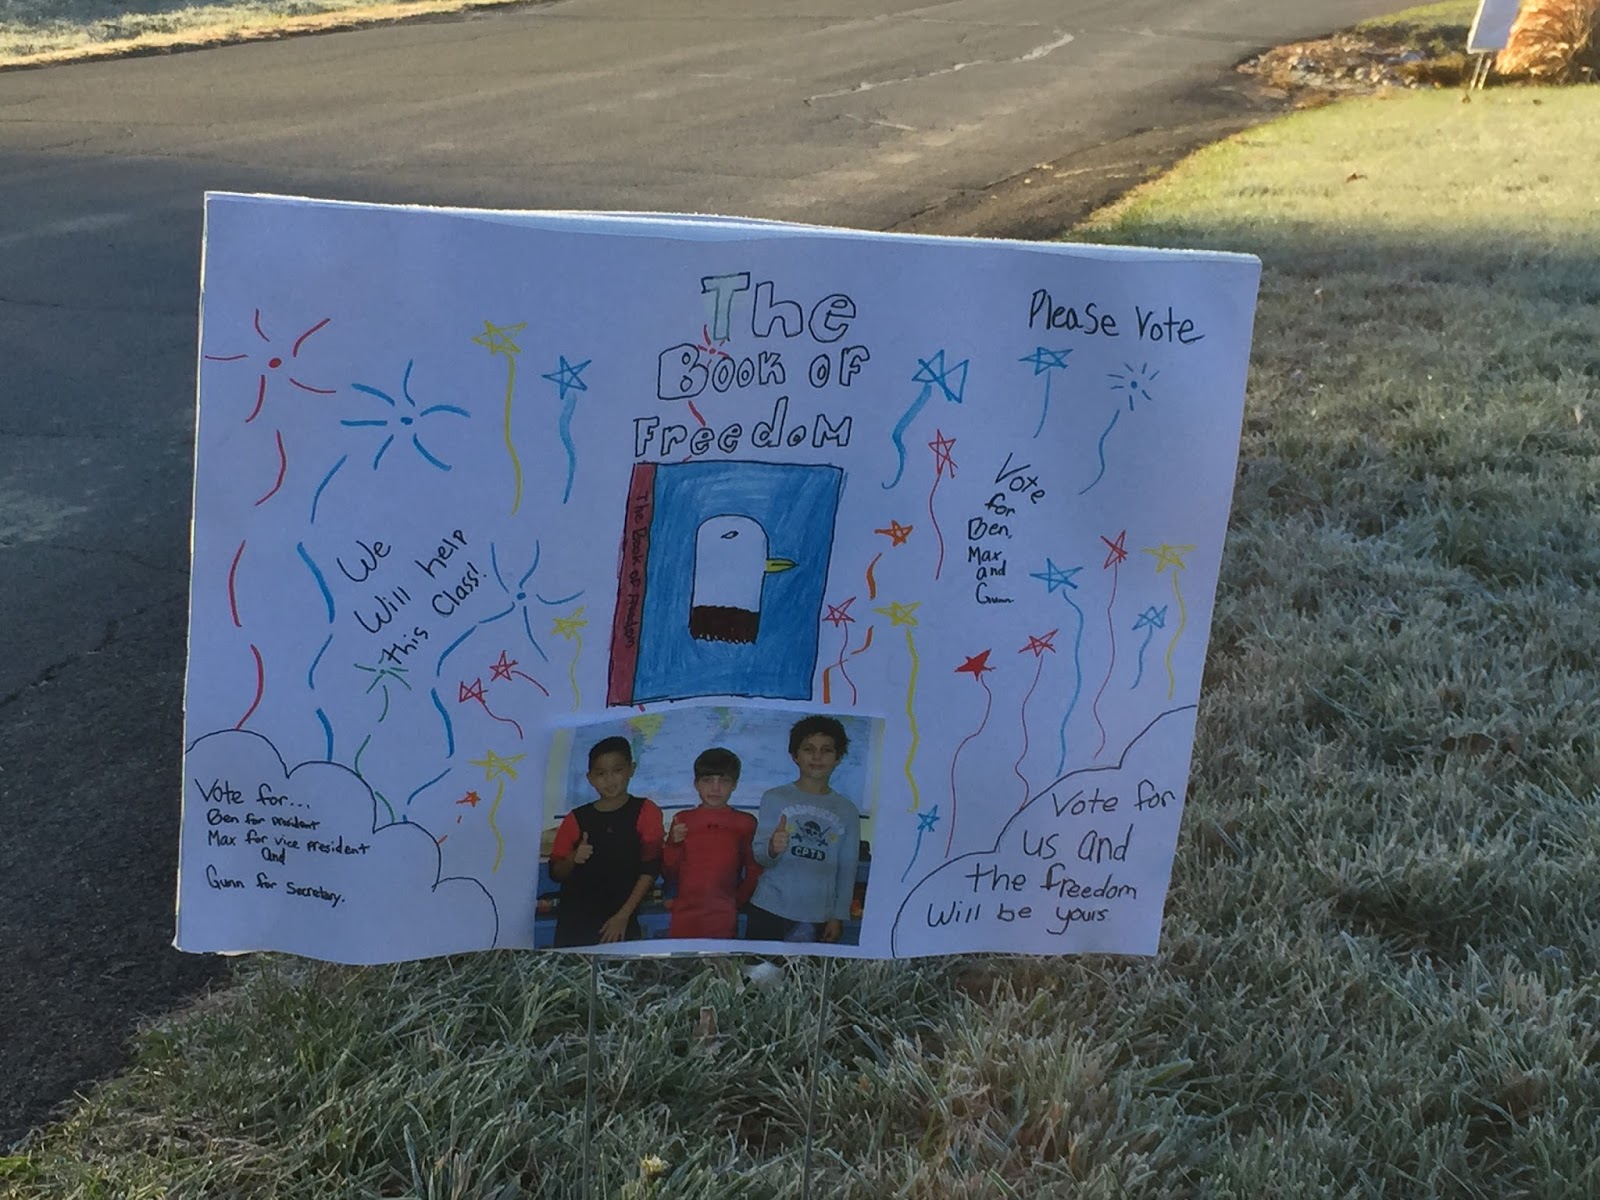 The
Book of
Freedom
Please Vote
The Book of Freedom
We
Will help
this Class!
Vote
for
Ben,
Max,
and
Gunn
Vote for...
Ben for president
Max for vice president
and
Gunn for Secretary.
CPTN
Vote for
us and
the freedom
Will be yours